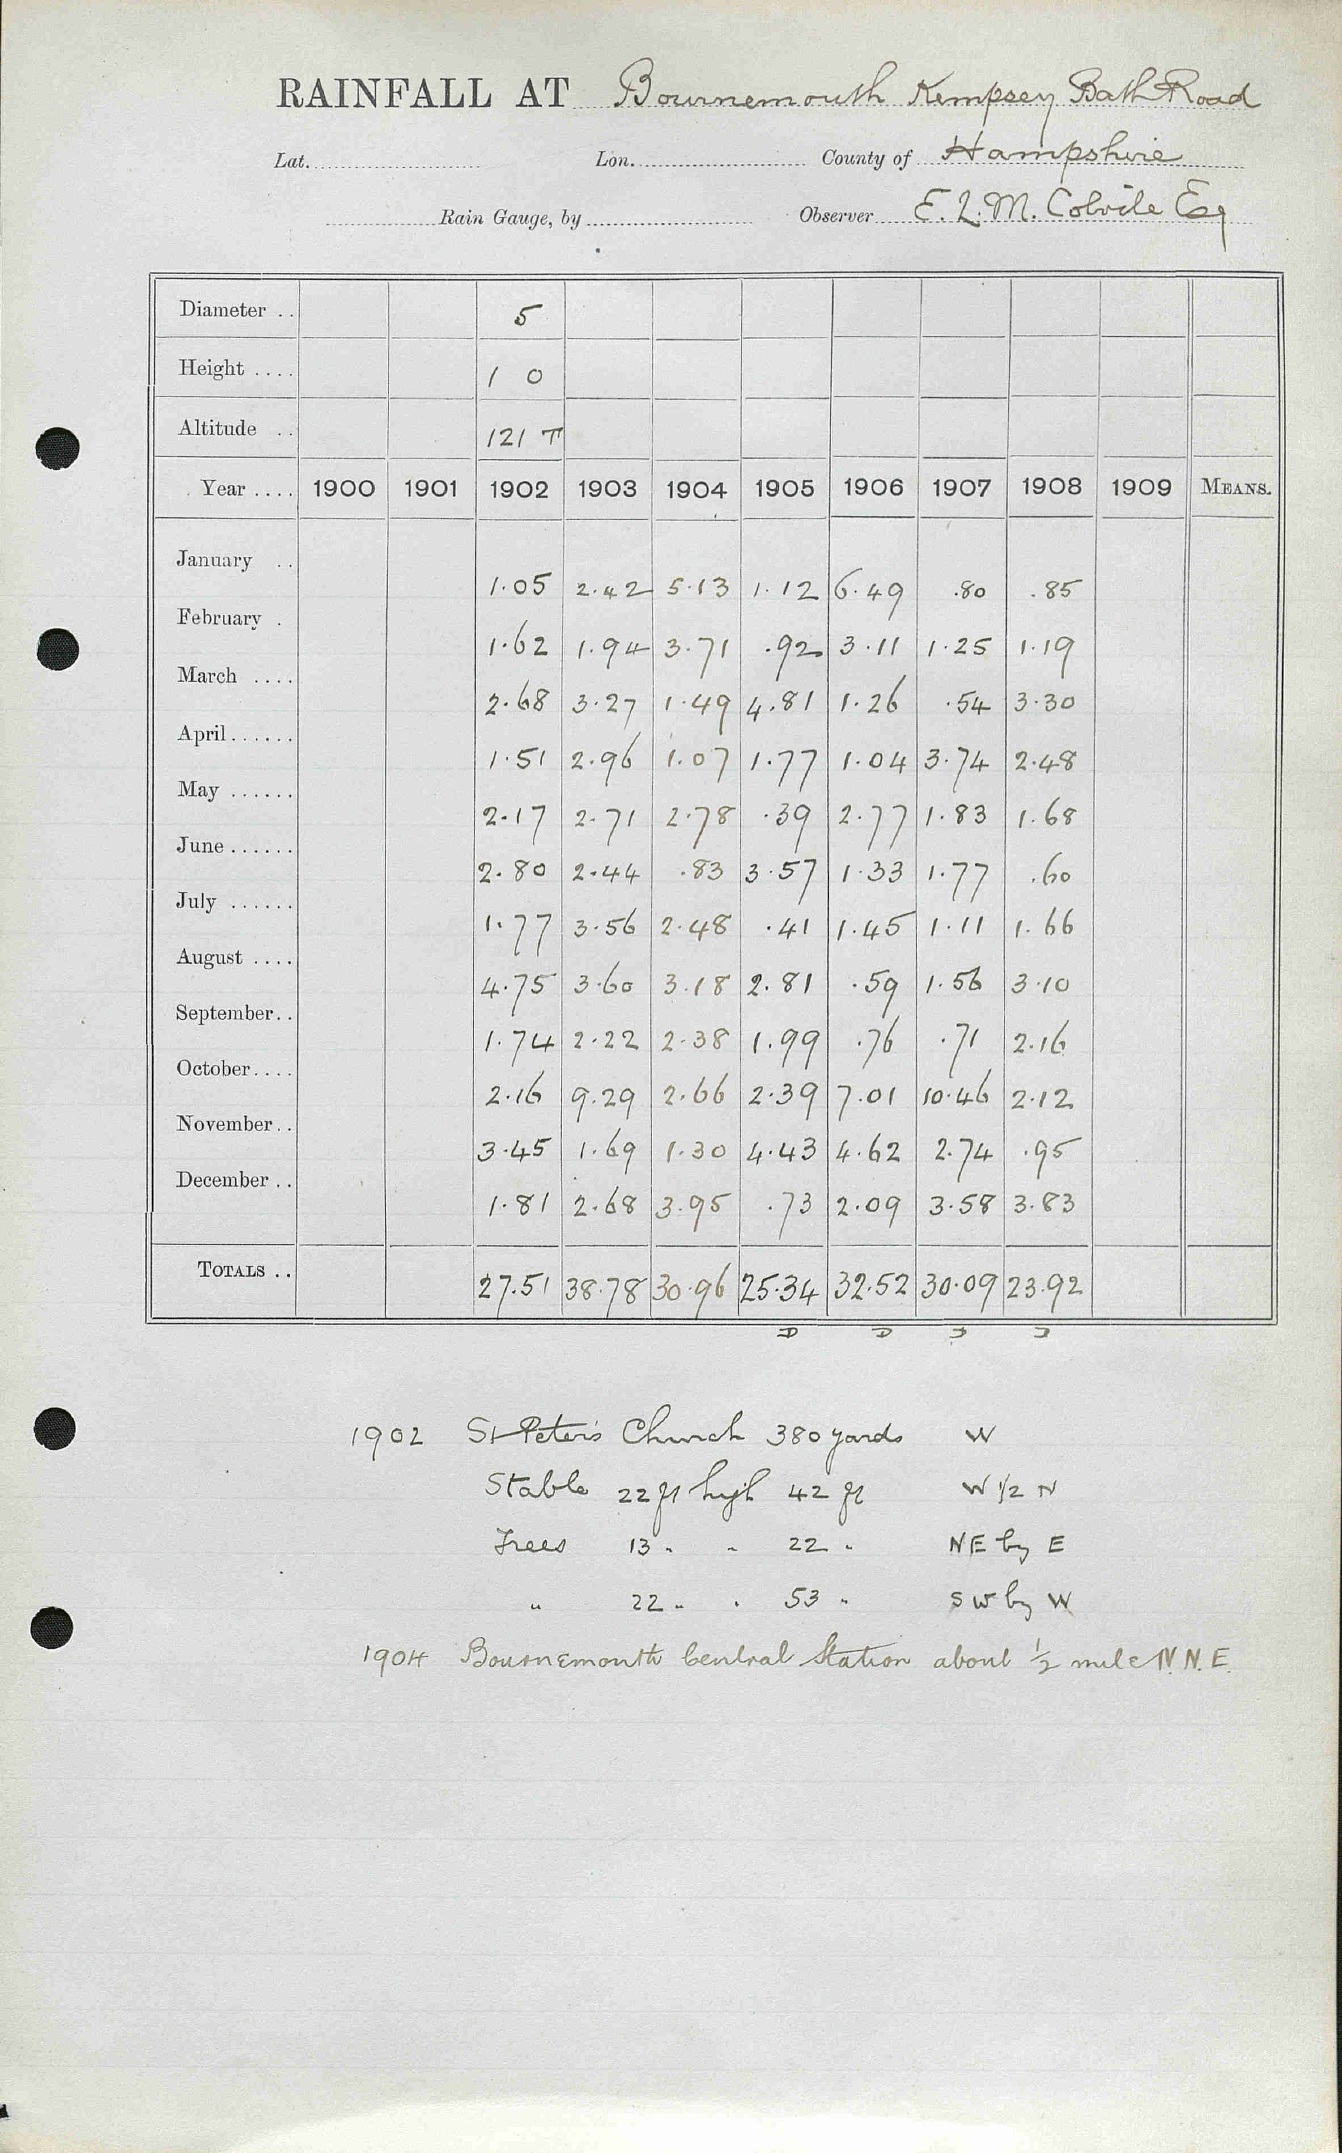 RAINFALL AT Bournemouth Kempsey Bath Road
Lat. Lon. County of Hampshire
Rain Gauge, by Observer E. L. M. Colvile Esq
Diameter .. 5
Height .... 1 0
Altitude .. 121 T
Year .... 1900 1901 1902 1903 1904 1905 1906 1907 1908 1909 MEANS.
January .. 1.05 2.42 5.13 1.12 6.49 .80 .85
February . 1.62 1.94 3.71 .92 3.11 1.25 1.19
March .... 2.68 3.27 1.49 4.81 1.26 .54 3.30
April ...... 1.51 2.96 1.07 1.77 1.04 3.74 2.48
May ...... 2.17 2.71 2.78 .39 2.77 1.83 1.68
June ...... 2.80 2.44 .83 3.57 1.33 1.77 .60
July ...... 1.77 3.56 2.48 .41 1.45 1.11 1.66
August .... 4.75 3.60 3.18 2.81 .59 1.56 3.10
September.. 1.74 2.22 2.38 1.99 .76 .71 2.16
October.... 2.16 9.29 2.66 2.39 7.01 10.46 2.12
November.. 3.45 1.69 1.30 4.43 4.62 2.74 .95
December .. 1.81 2.68 3.95 .73 2.09 3.58 3.83
TOTALS .. 27.51 38.78 30.96 25.34 32.52 30.09 23.92
1902 St Peter's Church 380 yards W
Stable 22 ft high 42 ft W 1/2 N
Trees 13 " " 22 " NE by E
" 22 " " 53 " SW by W
1904 Bournemouth Central Station about 1/2 mile N.N.E.